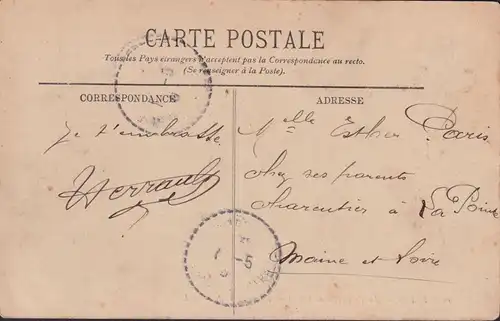 CARTE POSTALE
Tous les Pays étrangers n'acceptent pas la Correspondance au recto.
(Se renseigner à la Poste).
CORRESPONDANCE
Je t'embrasse
ADRESSE
Melle Esther Paris
chez ses parents
charentier à La Pointe
Maine et Loire